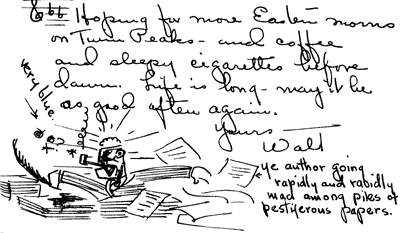 Hoping for more Eastern morns
on Twin Peaks - and coffee
and sleepy cigarettes before
dawn. Life is long - may it be
as good often again.
Yours
Walt
very blue.
ye author going
rapidly and rabidly
mad among piles of
pestiferous papers.